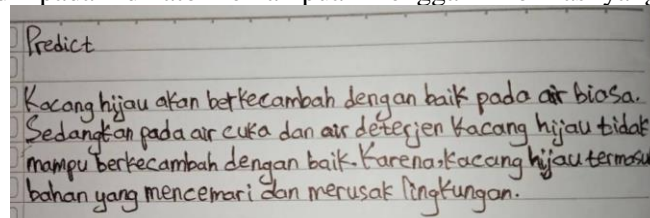 Predict
Kacang hijau akan berkecambah dengan baik pada air biasa.
Sedangkan pada air cuka dan air deterjen kacang hijau tidak
mampu berkecambah dengan baik. Karena kacang hijau termasu
bahan yang mencemari dan merusak lingkungan.